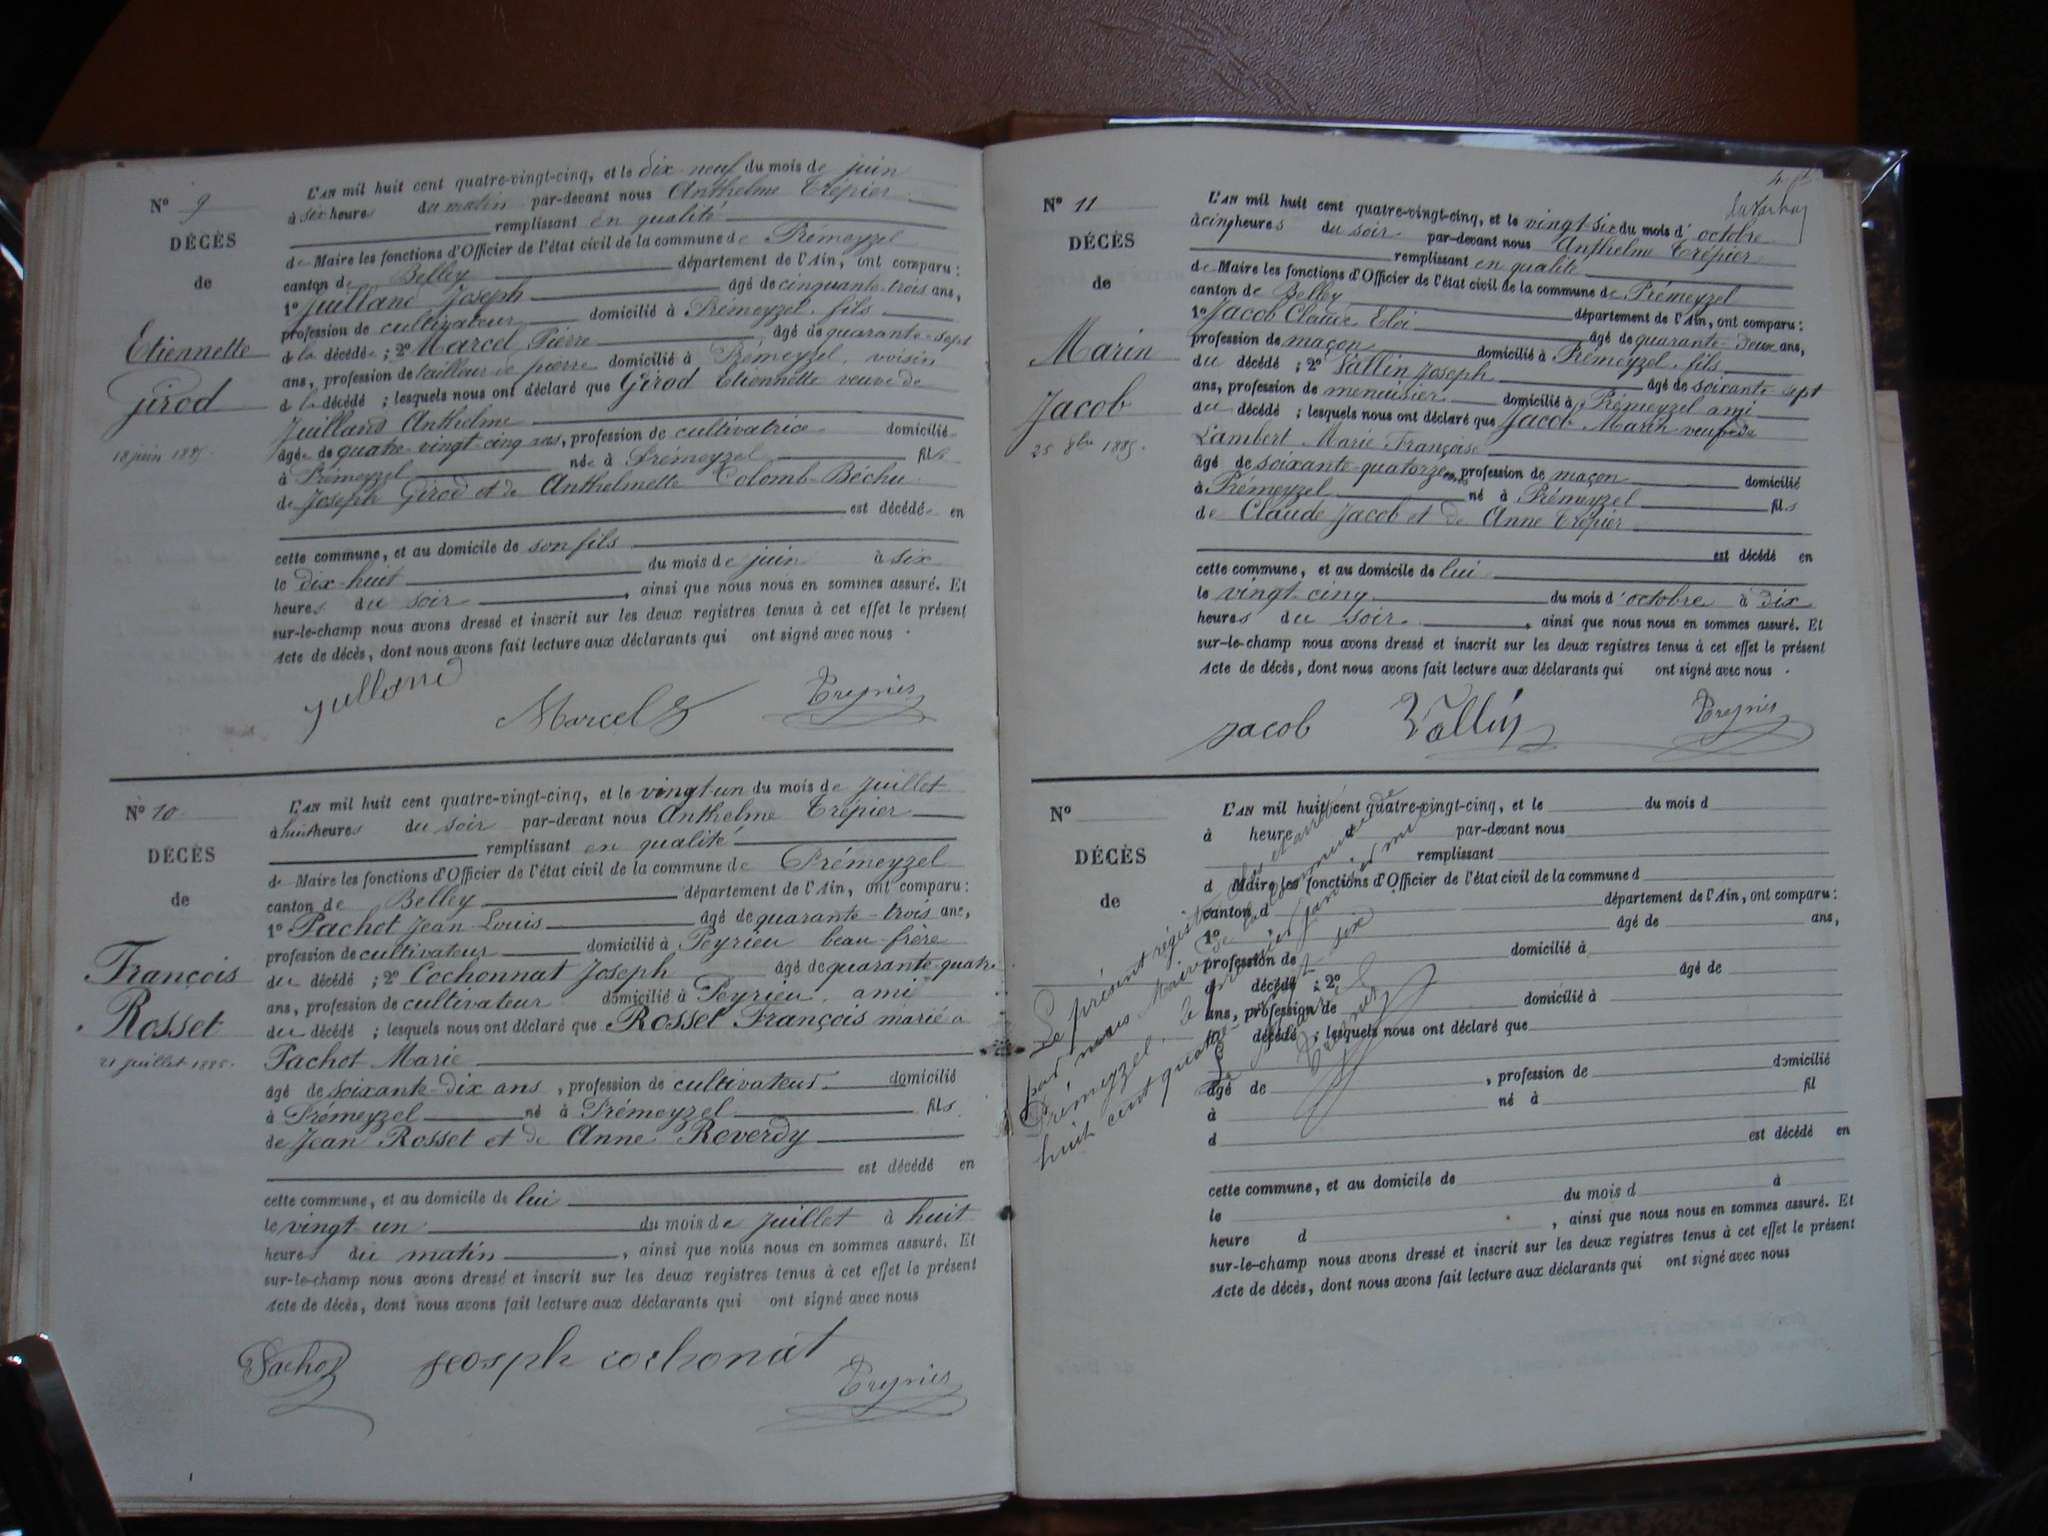 N° 9
DÉCÈS
de
Etiennette
Girod
18 juin 1885.
L'AN mil huit cent quatre-vingt-cinq, et le dix neuf du mois de juin
à six heures du matin par-devant nous Anthelme Trépier
remplissant en qualité
de Maire les fonctions d'Officier de l'état civil de la commune de Prémeyzel
canton de Belley département de l'Ain, ont comparu :
1° Juilland Joseph âgé de cinquante-trois ans,
profession de cultivateur domicilié à Prémeyzel, fils
de la décédée ; 2° Marcel Pierre âgé de quarante-sept
ans, profession de tailleur de pierre domicilié à Prémeyzel, voisin
de la décédé ; lesquels nous ont déclaré que Girod Etiennette veuve de
Juilland Anthelme
âgée de quatre-vingt cinq ans, profession de cultivatrice domicilié
à Prémeyzel née à Prémeyzel fille
de Joseph Girod et de Anthelmette Colomb-Béchu
est décédée en
cette commune, et au domicile de son fils
le dix-huit du mois de juin à six
heures du soir , ainsi que nous nous en sommes assuré. Et
sur-le-champ nous avons dressé et inscrit sur les deux registres tenus à cet effet le présent
Acte de décès, dont nous avons fait lecture aux déclarants qui ont signé avec nous .
Juilland Marcel Treynis
N° 10
DÉCÈS
de
François
Rosset
21 juillet 1885.
L'AN mil huit cent quatre-vingt-cinq, et le vingt-un du mois de Juillet
à huit heures du soir par-devant nous Anthelme Trépier
remplissant en qualité
de Maire les fonctions d'Officier de l'état civil de la commune de Prémeyzel
canton de Belley département de l'Ain, ont comparu :
1° Pachot Jean-Louis âgé de quarante-trois ans,
profession de cultivateur domicilié à Peyrieu beau-frère
du décédé ; 2° Cochonnat Joseph âgé de quarante-quatre
ans, profession de cultivateur domicilié à Peyrieu, ami
du décédé ; lesquels nous ont déclaré que Rosset François marié à
Pachot Marie
âgé de soixante-dix ans , profession de cultivateur domicilié
à Prémeyzel né à Prémeyzel fils
de Jean Rosset et de Anne Reverdy
est décédé en
cette commune, et au domicile de lui
le vingt un du mois de Juillet à huit
heures du matin , ainsi que nous nous en sommes assuré. Et
sur-le-champ nous avons dressé et inscrit sur les deux registres tenus à cet effet le présent
Acte de décès, dont nous avons fait lecture aux déclarants qui ont signé avec nous
Pachot Jeosph cochonat Treynis
N° 11
DÉCÈS
de
Marin
Jacob
25 8bre 1885.
L'AN mil huit cent quatre-vingt-cinq, et le vingt-six du mois d'octobre
à cinq heures du soir par-devant nous Anthelme Trépier
remplissant en qualité
de Maire les fonctions d'Officier de l'état civil de la commune de Prémeyzel
canton de Belley département de l'Ain, ont comparu :
1° Jacob Claude Eloi âgé de quarante-deux ans,
profession de maçon domicilié à Prémeyzel, fils
du décédé ; 2° Vallin Joseph âgé de soixante-sept
ans, profession de menuisier domicilié à Prémeyzel ami
du décédé ; lesquels nous ont déclaré que Jacob Marin veuf de
Lambert Marie Françoise
âgé de soixante-quatorze ans, profession de maçon domicilié
à Prémeyzel né à Prémeyzel fils
de Claude Jacob et de Anne Trépier
est décédé en
cette commune, et au domicile de lui
le vingt cinq du mois d'octobre à dix
heures du soir , ainsi que nous nous en sommes assuré. Et
sur-le-champ nous avons dressé et inscrit sur les deux registres tenus à cet effet le présent
Acte de décès, dont nous avons fait lecture aux déclarants qui ont signé avec nous .
Jacob Vallin Treynis
N°
DÉCÈS
de
L'AN mil huit cent quatre-vingt-cinq, et le du mois d
à heure d par-devant nous
remplissant
d Maire les fonctions d'Officier de l'état civil de la commune d
canton d département de l'Ain, ont comparu :
1° âgé de ans,
profession de domicilié à
d décédé ; 2° âgé de
ans, profession de domicilié à
d décédé ; lesquels nous ont déclaré que
âgé de , profession de domicilié
à né à fil
d est décédé en
cette commune, et au domicile de
le du mois d à
heure d , ainsi que nous nous en sommes assuré. Et
sur-le-champ nous avons dressé et inscrit sur les deux registres tenus à cet effet le présent
Acte de décès, dont nous avons fait lecture aux déclarants qui ont signé avec nous
Le présent régistre clos et arrêté
par nous Maire de la commune de
Prémeyzel, le premier janvier mil
huit cent quatre-vingt six
Treynis